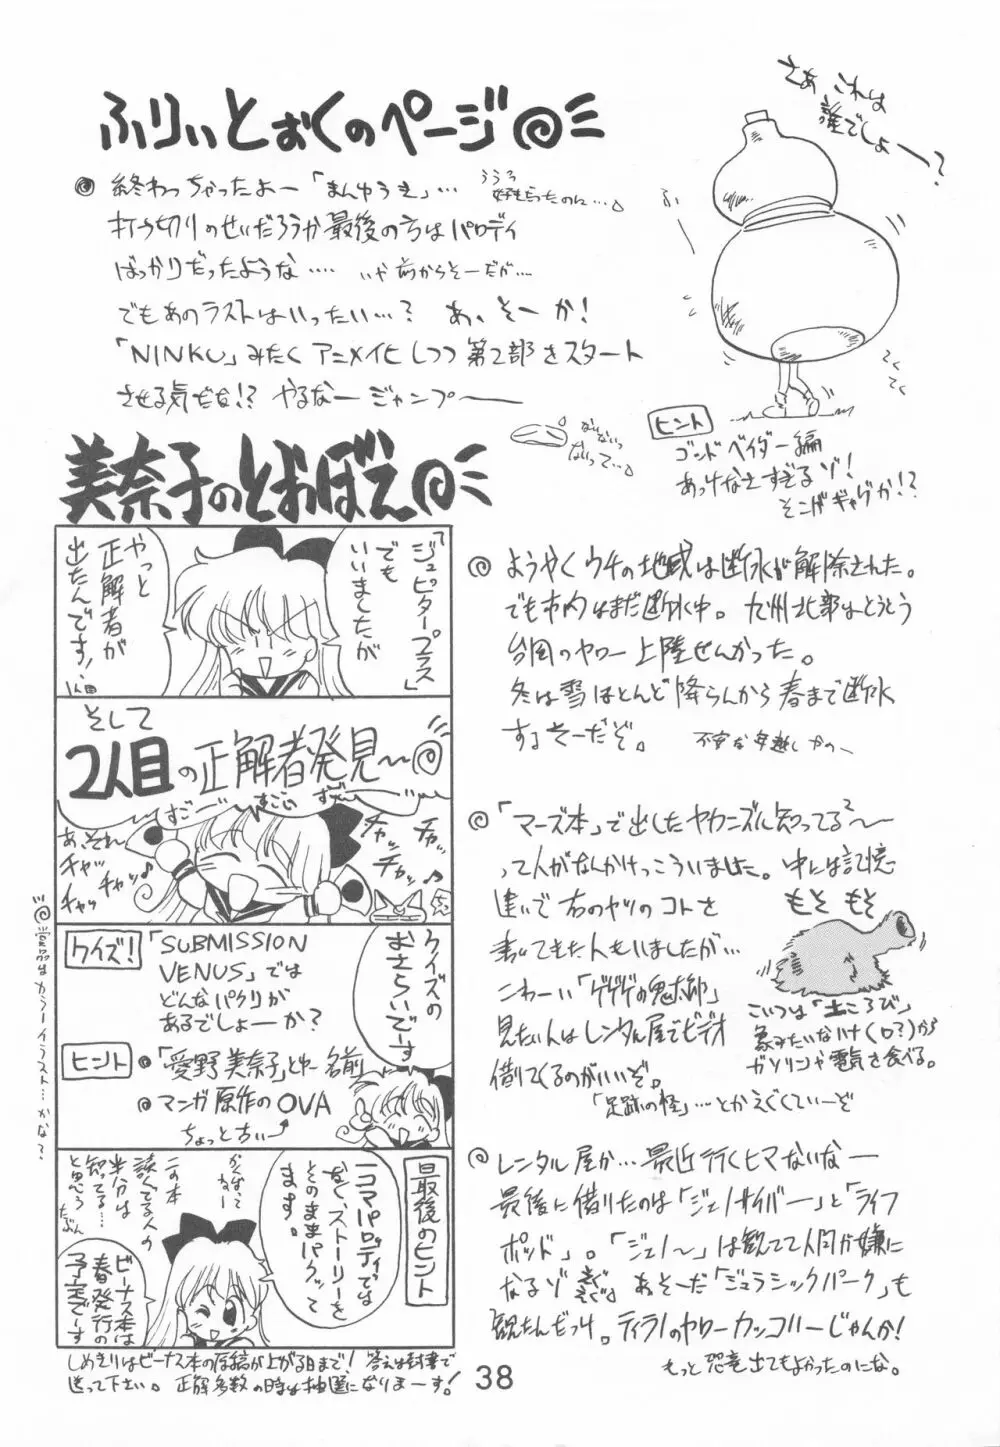 ふりぃとぉくのページ
さぁ これは
誰でしょー?
終わっちゃったよー「まんゆうき」…
打ち切りのせいだろうか最後の方はパロディ
ばっかりだったような…. いや前からそーだが….
でもあのラストはいったい…? あ、そーか!
「NINKU」みたく アニメイ化しつつ 第2部をスタート
させる気だな!? やるなー ジャンプ――
ヒント
ゴンドベイダー編
あっけなさすぎるゾ!
そこがギャグか!?
ないないっ
ないって…。
美奈子のとおぼえ
「ジュピタープラス」
でも
いいましたが
やっと
正解者が
出たんです!
そして
2人目の正解者発見〜
すごーい すごい
あ、それ
チャッ
チャッ
チャッ
クイズの
おさらいでーす
クイズ!
「SUBMISSION
VENUS」では
どんなパクリが
あるでしょーか?
ヒント
「愛野美奈子」とゆー名前
マンガ原作のOVA
ちょっと古い
最後のヒント
1コマパロディでは
なく、ストーリーを
そのままパクッて
ます。
この本
読んでる人の
半分は
知ってる…
と思ろ
たぶん
ビーナス本は
春発行の
予定でーす
しめきりはビーナス本の原稿が上がる日まで! 答えは封書で
送って下さい。 正解多数の時は抽選になりまーす!
賞品はカラーイラスト…かな?
ようやくウチの地域は断水が解除された。
でも市内はまだ断水中。 九州北部はとうとう
台風のヤロー 上陸せんかった。
冬は雪ほとんど降らんから春まで断水
するそーだぞ。
「マーズ本」で出したヤカンズル知ってる〜
って人がなんかけっこういました。中には記憶
違いで右のヤツのコトを
書いてきた人もいましたが…
こわーい「ゲゲゲの鬼太郎」
見たい人はレンタル屋でビデオ
借りてくるのがいいぞ。
「足跡の怪」…とかえぐくていーぞ
もそ もそ
こいつは「土ころび」
象みたいなハナ(口?)から
ガソリンや電気を食べる。
レンタル屋か… 最近行くヒマないなー
最後に借りたのは「ジェノサイバー」と「ライフ
ポッド」。「ジェノ〜」は観てて人間が嫌に
なるゾ あ、そーだ「ジュラシックパーク」も
観たんだっけ。ティラノのヤローカッコいーじゃんか!
もっと恐竜出てもよかったのにな。
38